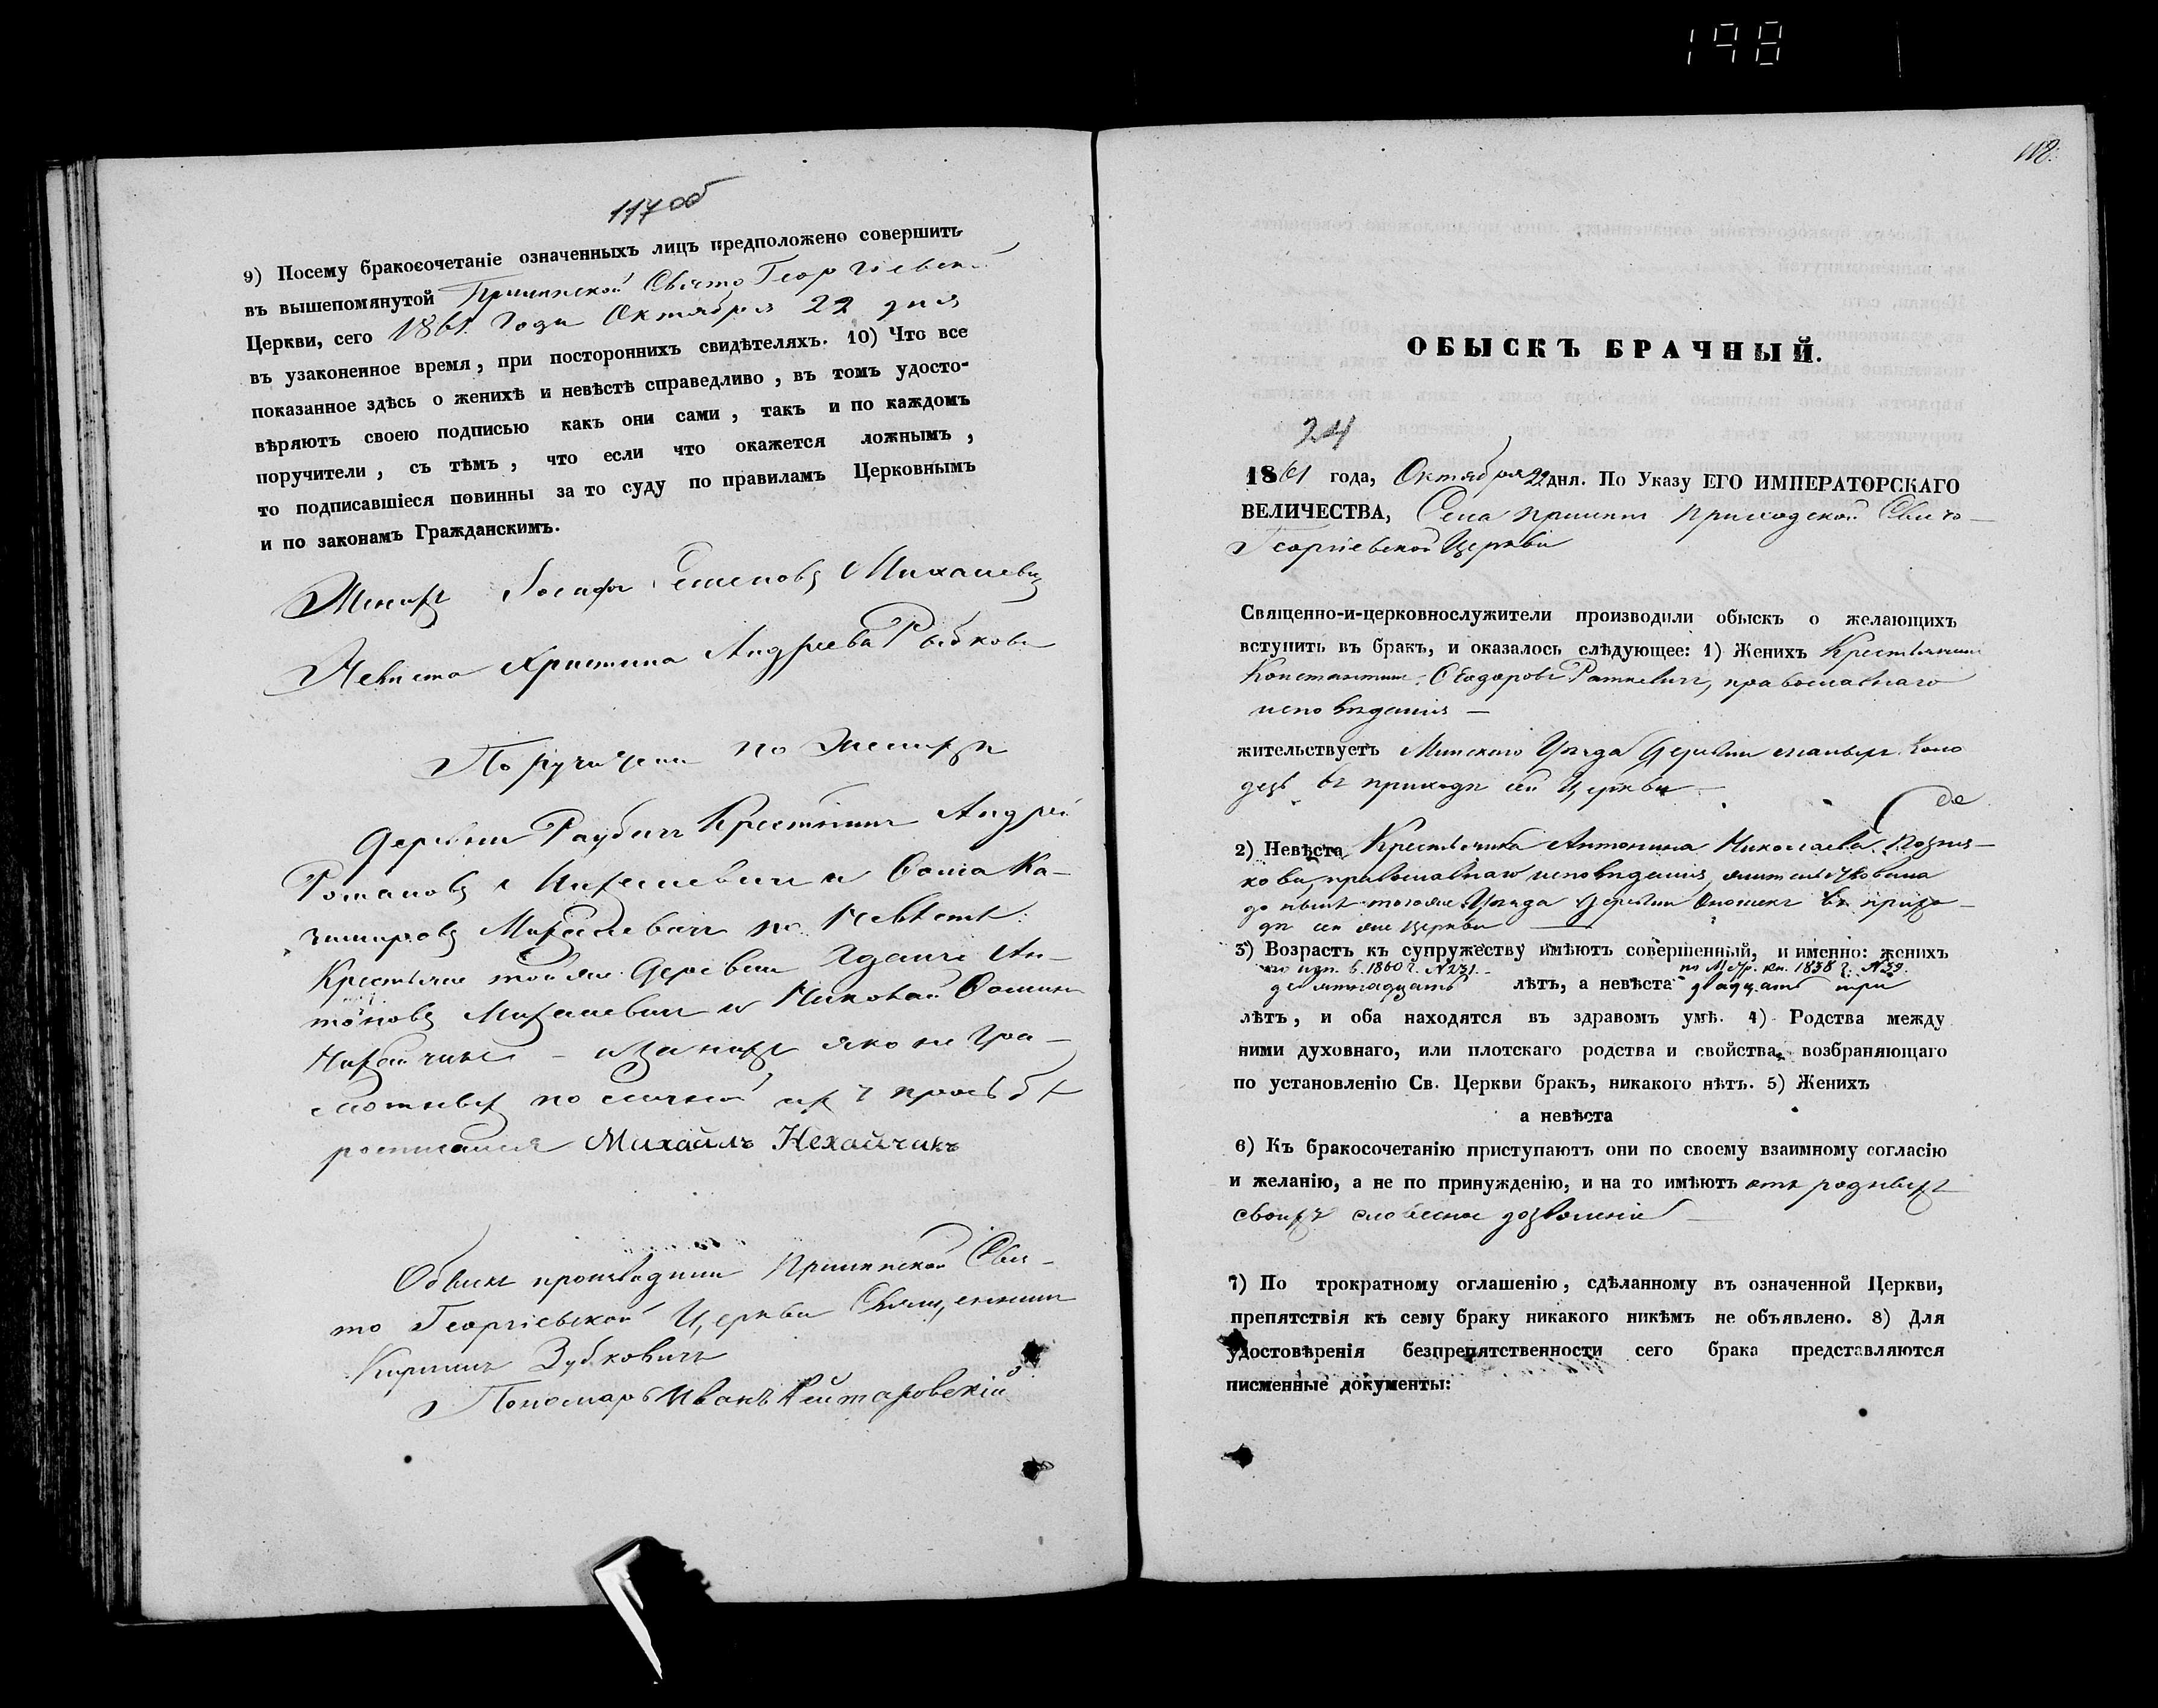 198
117 об
9) Посему бракосочетаніе означенныхъ лицъ предположено совершить
въ вышепомянутой Прилепской Свято Георгіевской
Церкви, сего 1861 года Октября 22 дня
въ узаконенное время, при постороннихъ свидѣтеляхъ. 10) Что все
показанное здѣсь о женихѣ и невѣстѣ справедливо, въ томъ удосто-
вѣряютъ своею подписью какъ они сами, такъ и по каждомъ
поручители, съ тѣмъ, что если что окажется ложнымъ,
то подписавшіеся повинны за то суду по правиламъ Церковнымъ
и по законамъ Гражданскимъ.
Женихъ Іосифъ Михалевич
Невѣста Христина Андреева Рыбкова
Поручители по Женихѣ
деревни Раубичъ Крестьянинъ Андрей
Романовъ Михалевичъ и Фома Ка-
зимировъ Михалевичъ по Невѣстѣ:
Крестьяне той же деревни Ан-
тоновъ Михалевичъ и Николай Фоминъ
Нихайчикъ – а за нихъ яко негра-
мотныхъ по личной ихъ прозьбѣ
росписался Михаилъ Нехайчикъ
Обыскъ производили Прилепской Свя-
то Георгіевской Церкви Священникъ
Кириллъ Зубковичъ
Пономарь Иванъ
118.
ОБЫСКЪ БРАЧНЫЙ.
24
1861 года, Октября 22 дня. По Указу ЕГО ИМПЕРАТОРСКАГО
ВЕЛИЧЕСТВА, Села Прилепъ Приходской Свято-
Георгіевской Церкви
Священно-и-церковнослужители производили обыскъ о желающихъ
вступить въ бракъ, и оказалось слѣдующее: 1) Женихъ Крестьянинъ
Константинъ Ѳеодоровъ Раткевичъ, православнаго
исповѣданія —
жительствуетъ Минскаго Уѣзда Деревни Коло
дезь въ приходѣ сей Церкви —
2) Невѣста Крестьянка Антонина Николаева Позня-
кова, православнаго исповѣданія, жительствовала
до нынѣ тогоже Уѣзда Деревни въ прихо-
дѣ сей же Церкви —
3) Возрастъ къ супружеству имѣютъ совершенный, и именно: женихъ
по исп. в. 1860 г. №231. по Метр. кн. 1838 г. №39.
девятнадцать лѣтъ, а невѣста двадцать три
лѣтъ, и оба находятся въ здравомъ умѣ. 4) Родства между
ними духовнаго, или плотскаго родства и свойства, возбраняющаго
по установленію Св. Церкви бракъ, никакого нѣтъ. 5) Женихъ
а невѣста
6) Къ бракосочетанію приступаютъ они по своему взаимному согласію
и желанію, а не по принужденію, и на то имѣютъ отъ родныхъ
своихъ словесное дозволеніе —
7) По трократному оглашенію, сдѣланному въ означенной Церкви,
препятствія къ сему браку никакого никѣмъ не объявлено. 8) Для
удостовѣренія безпрепятственности сего брака представляются
писменные документы: